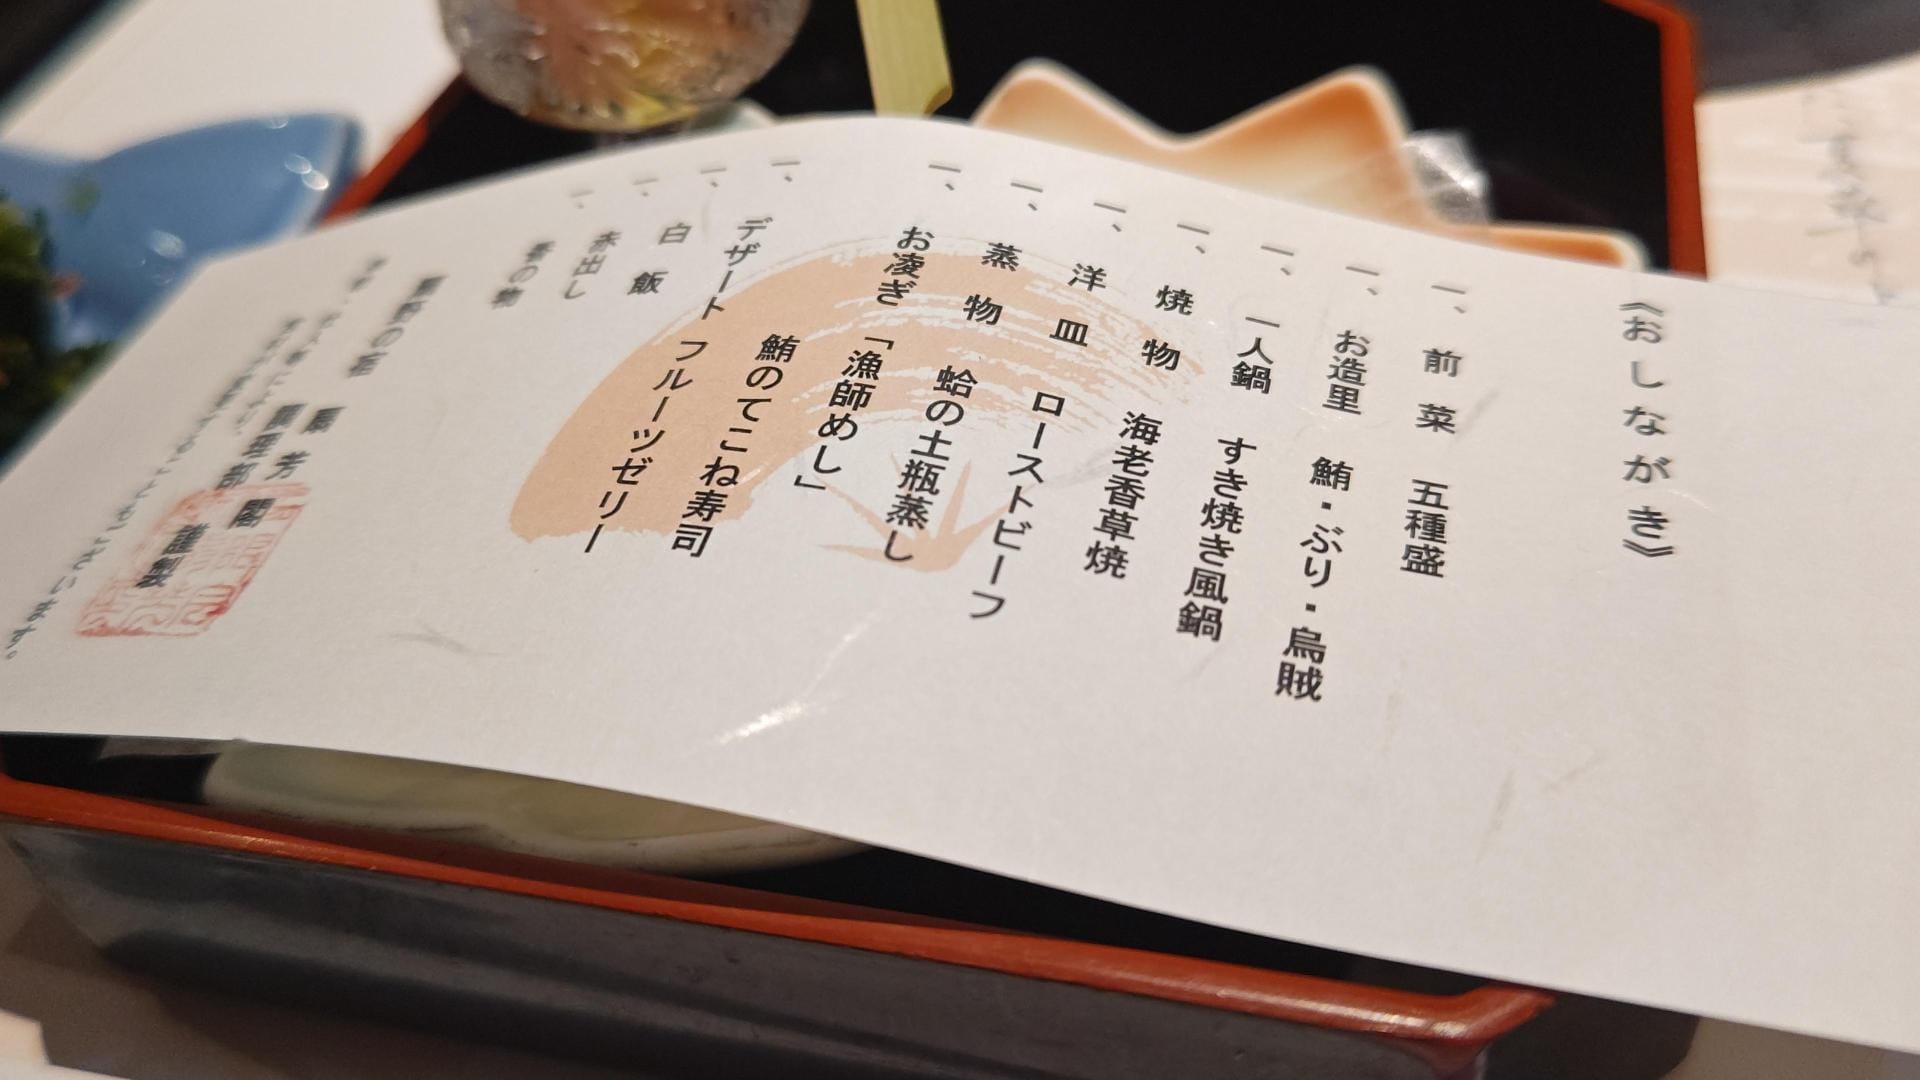 《おしながき》
一、前菜 五種盛
一、お造里 鮪・ぶり・烏賊
一、一人鍋 すき焼き風鍋
一、焼物 海老香草焼
一、洋皿 ローストビーフ
一、蒸物 蛤の土瓶蒸し
一、お凌ぎ 「漁師めし」
鮪のてこね寿司
一、デザート フルーツゼリー
一、白飯
一、赤出し
一、香の物
の宿 芳閣
調理部 謹製
ございます。